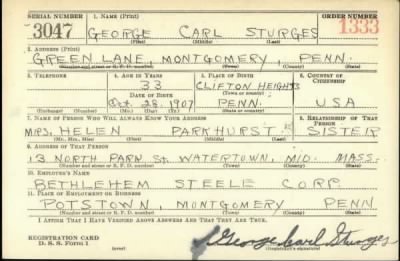 SERIAL NUMBER 1. NAME (Print) ORDER NUMBER
3047 GEORGE CARL STURGES 1333
(First) (Middle) (Last)
2. ADDRESS (Print)
GREEN LANE, MONTGOMERY, PENN.
(Number and street or R. F. D. number) (Town) (County) (State)
3. TELEPHONE 4. AGE IN YEARS 5. PLACE OF BIRTH 6. COUNTRY OF CITIZENSHIP
33 CLIFTON HEIGHTS
DATE OF BIRTH (Town or county)
Oct. 28, 1907 PENN. USA
(Exchange) (Number) (Mo.) (Day) (Yr.) (State or country)
7. NAME OF PERSON WHO WILL ALWAYS KNOW YOUR ADDRESS 8. RELATIONSHIP OF THAT PERSON
MRS. HELEN PARKHURST SISTER
(Mr., Mrs., Miss) (First) (Middle) (Last)
9. ADDRESS OF THAT PERSON
13 NORTH PARK St. WATERTOWN, MID. MASS.
(Number and street or R. F. D. number) (Town) (County) (State)
10. EMPLOYER'S NAME
BETHLEHEM STEELE CORP.
11. PLACE OF EMPLOYMENT OR BUSINESS
POTSTOWN, MONTGOMERY PENN
(Number and street or R. F. D. number) (Town) (County) (State)
I AFFIRM THAT I HAVE VERIFIED ABOVE ANSWERS AND THAT THEY ARE TRUE.
REGISTRATION CARD
D. S. S. FORM 1 (over) George Carl Sturges
(Registrant's signature)